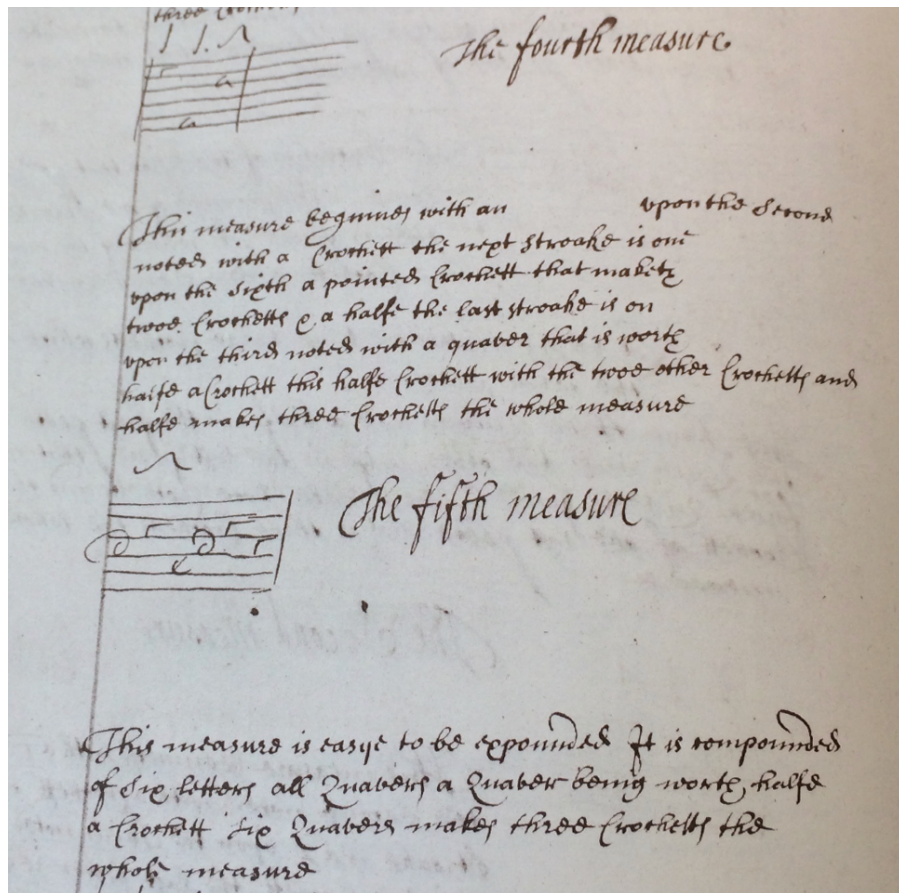 three Crochetts
The fourth measure.
This measure beginnes with an upon the Second
noted with a Crochett the next stroake is one
vpon the sixth a pointed Crochett that maketh
twoe Crochetts & a halfe the last stroake is on
vpon the third noted with a quaver that is worth
halfe a Crochett this halfe Crochett with the twoe other Crochetts and
halfe makes three Crochetts the whole measure
The fifth measure
This measure is easye to be expounded It is compounded
of six letters all Quavers a Quaver being worth halfe
a Crochett six Quavers makes three Crochetts the
whole measure